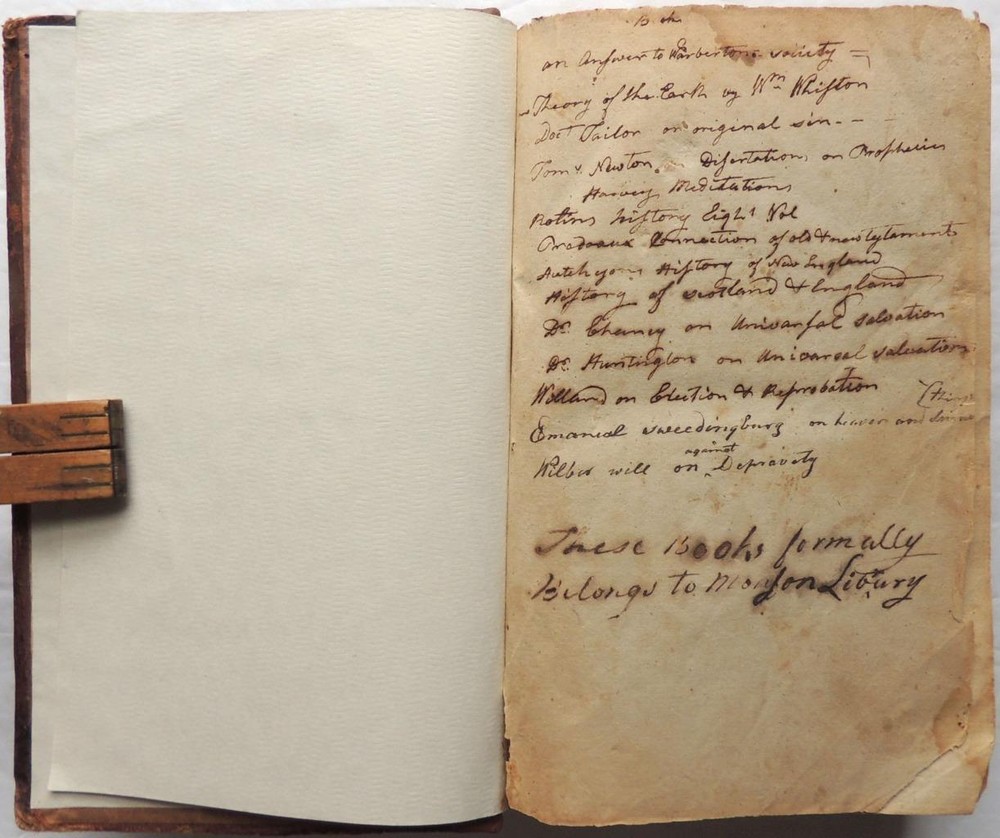 an Answer to Warbertons society =
Theory of the Earth by Wm Whiston
Doct Tailor on original sin - -
Tom's Newton on Disertations on Prophecies
Harveys Meditations
Rolins history Eight Vol
Pradeaux Connection of old & new tytaments
History of New England
History of scotland & England
Dr. Chancy on Univarsal salvation
Dr. Huntington on Univarsal salvation
Willard on Election & Reprobation
Emanual sweedingburg on heaven and
against
Wilber will on Depravety
These Books formally
Belongs to Monson Libury